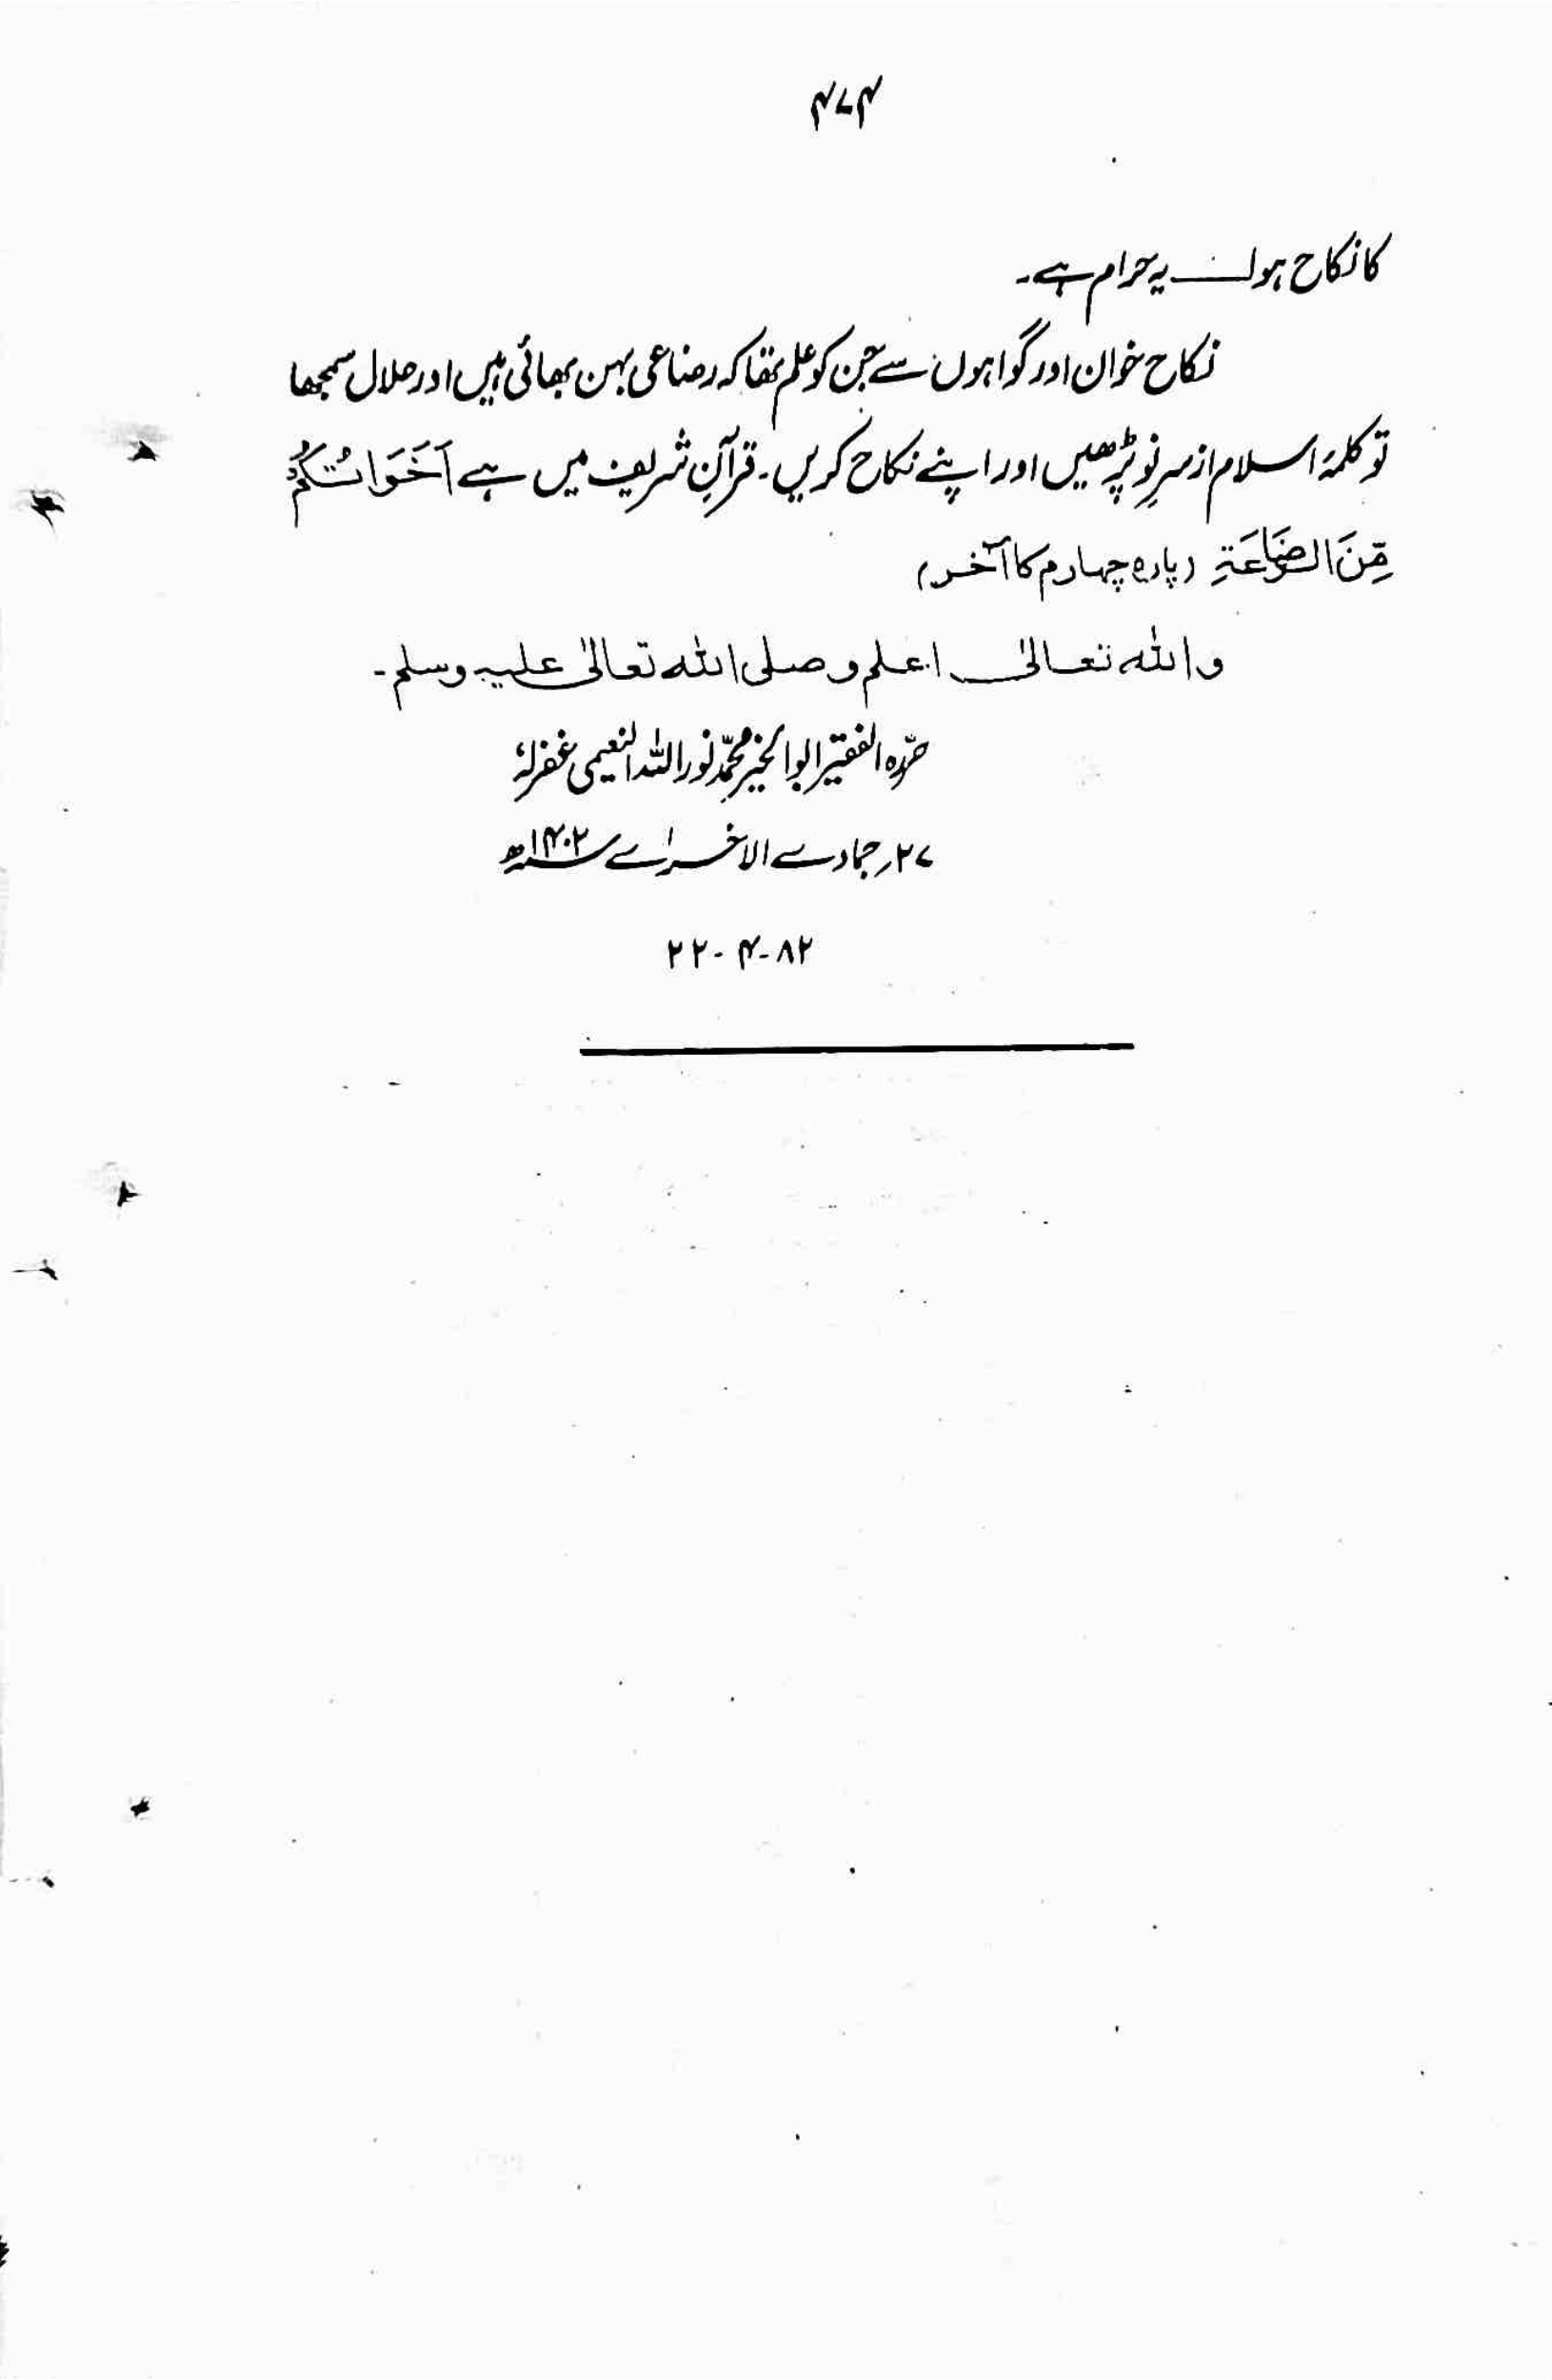 ۴۷۴
کا نکاح ہو۔ یہ حرام ہے۔
نکاح خوان اور گواہوں سے جن کو علم تھا کہ رضاعی بہن بھائی ہیں اور حلال سمجھا
تو کلمۂ اسلام از سرِ نو پڑھیں اور اپنے نکاح کریں۔ قرآنِ شریف میں ہے اَخَوَاتُكُمْ
مِّنَ الرَّضَاعَةِ (پارہ چہارم کا آخر)
واللہ تعالیٰ اعلم وصلی اللہ تعالیٰ علیہ وسلم۔
حرّرہ الفقیر ابوالخیر محمّد نور اللہ النعیمی غفرلہٗ
۲۷؍ جمادے الاخرٰے ۱۴۰۲ھ
۲۲-۴-۸۲